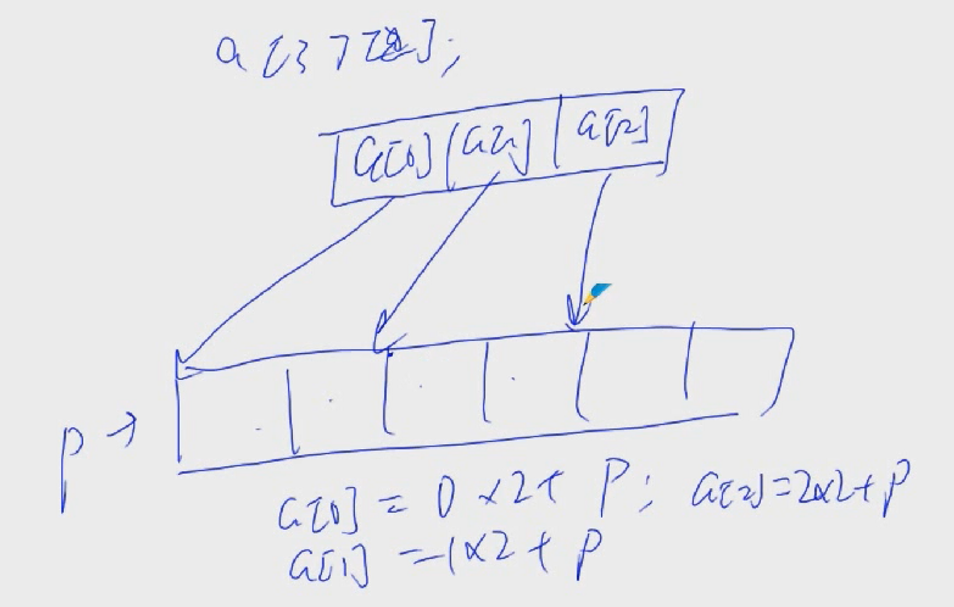 a[3][2];
a[0] a[1] a[2]
p→
a[0] = 0×2+ p; a[2]=2×2+p
a[1] =1×2+p